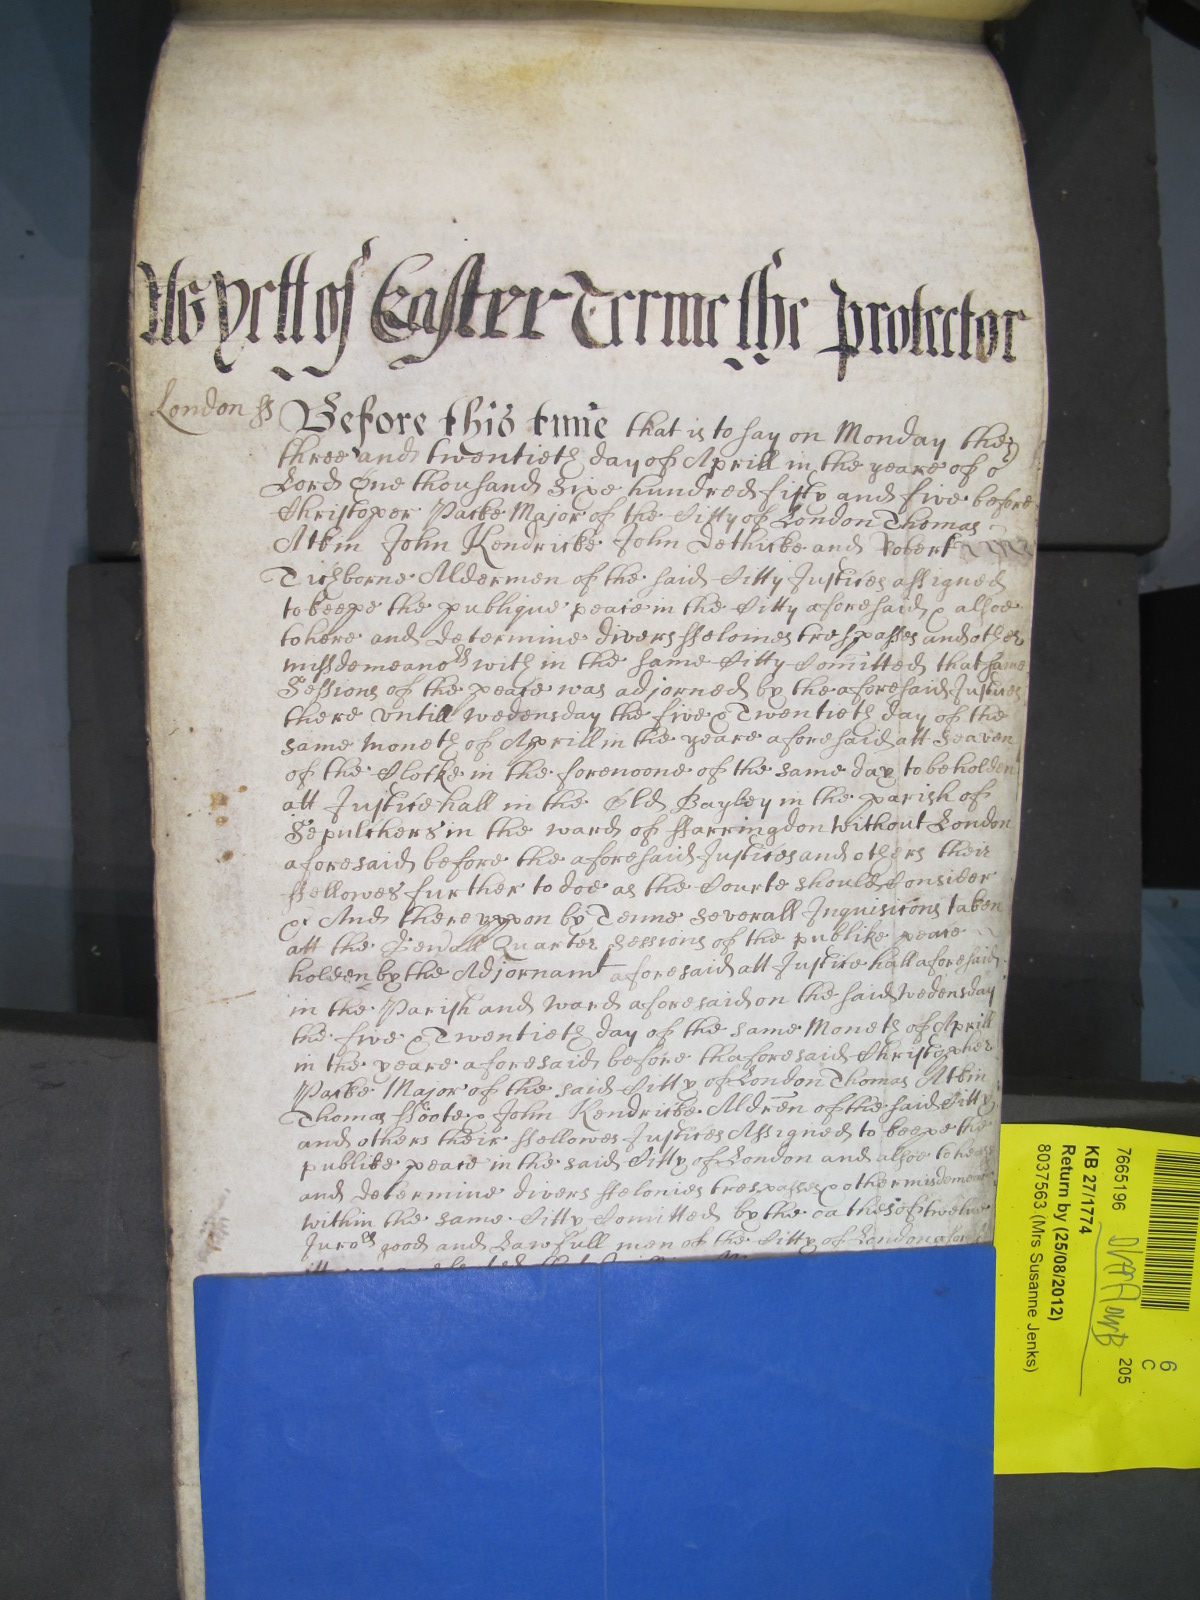 As yett of Easter Terme the Protector
London ss Before this time that is to say on Monday the
three and twentieth day of Aprill in the yeare of or
Lord One thousand Sixe hundred fifty and five before
Christoper Packe Major of the Citty of London Thomas
Atkin John Kendricke John Dethicke and Robert
Tichborne Aldermen of the said Citty Justices assigned
to keepe the publique peace in the Citty aforesaid & alsoe
to here and determine divers ffelonies trespasses and other
missdemeanors with in the same Citty Comitted that same
Sessions of the peace was adjorned by the aforesaid Justices
there untill wedensday the five & Twentieth day of the
same Moneth of Aprill in the yeare aforesaid att Seaven
of the Clocke in the forenoone of the same day to be holden
att Justice hall in the Old Bayley in the parish of
Sepulchers in the ward of ffarringdon without London
aforesaid before the aforesaid Justices and others their
ffellowes further to doe as the Courte should Consider
&c And thereuppon by Tenne severall Inquisicions taken
att the Gen'all Quarter Sessions of the publike peace
holden by the Adjornamt aforesaid att Justice hall aforesaid
in the Parish and ward aforesaid on the said wedensday
the five & Twentieth day of the same Moneth of Aprill
in the yeare aforesaid before thaforesaid Christopher
Packe Major of the said Citty of London Thomas Atkin
Thomas ffoote & John Kendricke Aldren of the said Citty
and others their ffellowes Justices Assigned to keepe the
publike peace in the said Citty of London and alsoe to heare
and determine divers ffelonies trespasses & other misdemeanors
within the same Citty Comitted by the oathes of twelve
Jurors good and Lawfull men of the Citty of London aforesaid
7665196
KB 27/1774
Return by (25/08/2012)
8037563 (Mrs Susanne Jenks)
205
6
C